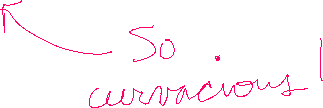 So
curvacious!